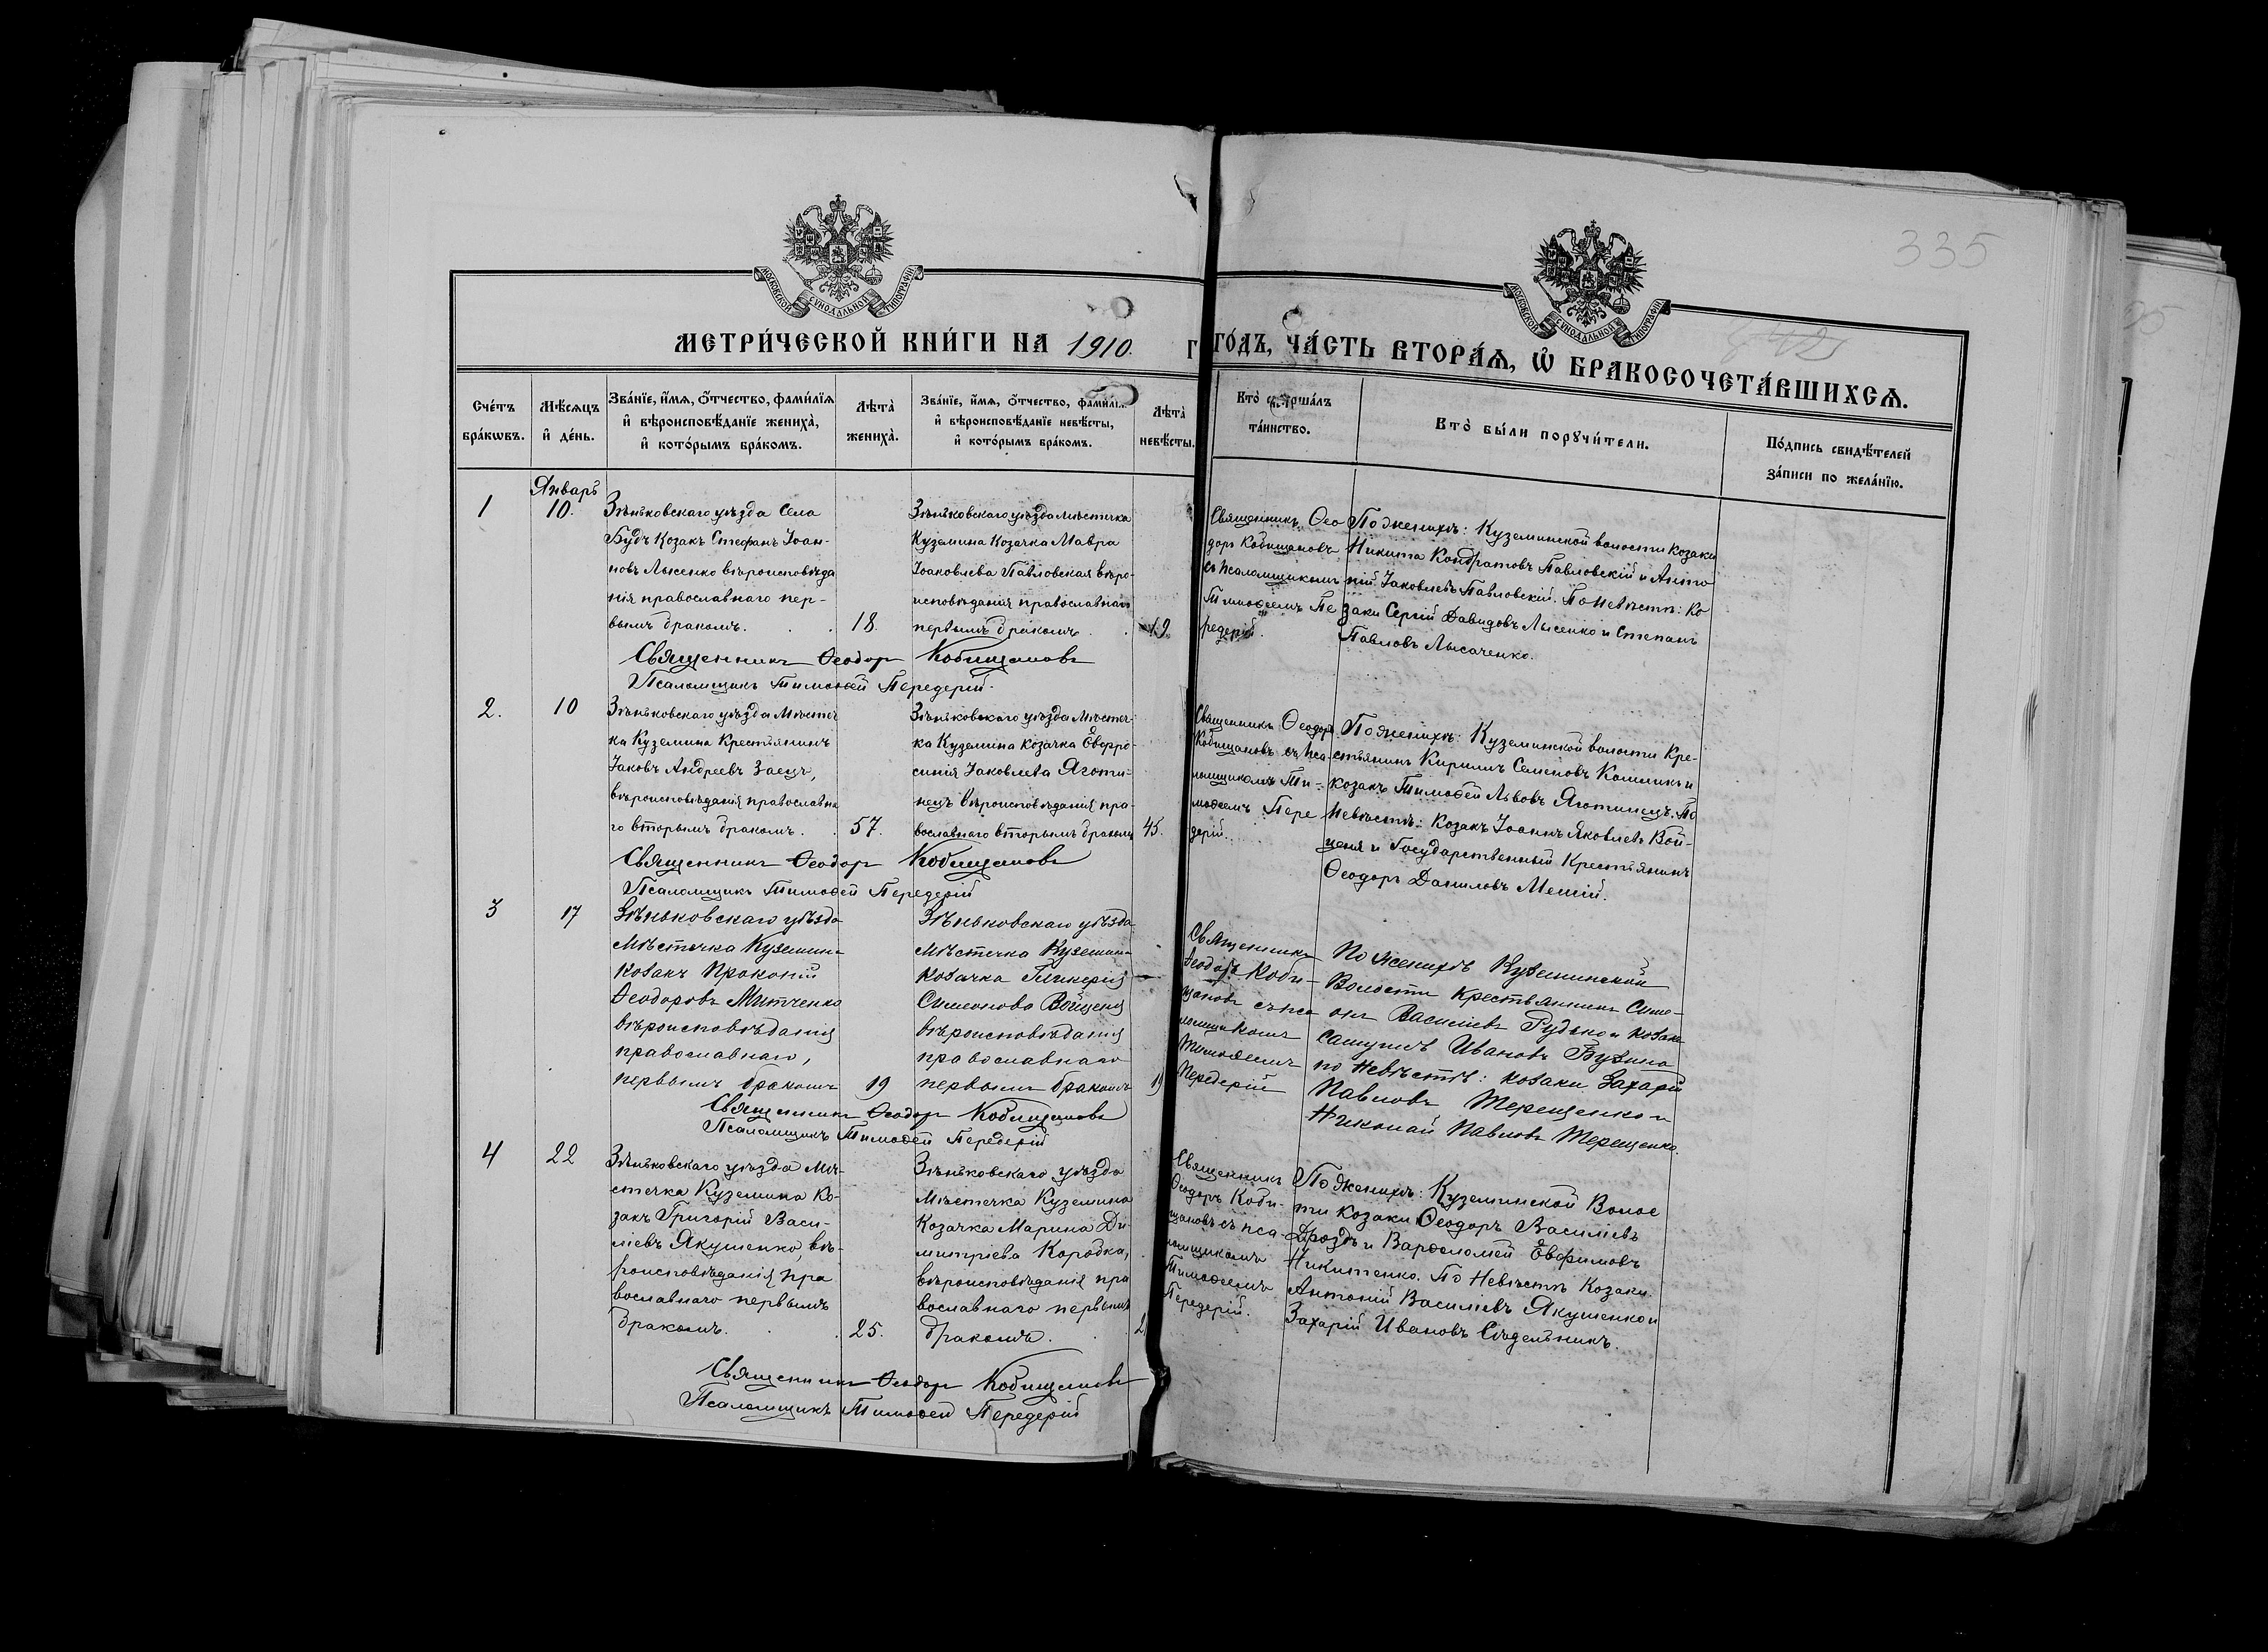 335
МОСКОВСКОЙ СУНОДАЛЬНОЙ ТИПОГРАФІИ
МОСКОВСКОЙ СУНОДАЛЬНОЙ ТИПОГРАФІИ
МЕТРИ́ЧЕСКОЙ КНИ́ГИ НА 1910. ГО́ДЪ, ЧА́СТЬ ВТОРА́Ѧ, Ѡ҆ БРАКОСОЧЕТА́ВШИХСѦ.
Сче́тъ
бра́кѡвъ.
Мѣ́сѧцъ
и҆ де́нь.
Зва́нїе, и҆́мѧ, ѻ҆́тчество, фами́лїѧ
и҆ вѣроисповѣ́данїе жениха̀,
и҆ кото́рымъ бра́комъ.
Лѣта̀
жениха̀.
Зва́нїе, и҆́мѧ, ѻ҆́тчество, фами́лїѧ
и҆ вѣроисповѣ́данїе невѣ́сты,
и҆ кото́рымъ бра́комъ.
Лѣта̀
невѣ́сты.
Кто̀ соверша́лъ
та́инство.
Кто̀ бы́ли порꙋчи́тели.
По́дпись свидѣ́телей
за́писи по жела́нїю.
1
Январь
10.
Зѣньковскаго уѣзда Села
Будъ Козакъ Стефанъ Іоан-
новъ Лысенко вѣроисповѣда
нія православнаго пер-
вымъ бракомъ.
18.
Зѣньковскаго уѣзда мѣстечка
Куземина Козачка Мавра
Іоаковлева Павловская вѣро-
исповѣданія православнаго
первымъ бракомъ.
19
Священникъ Ѳео
доръ Кобищановъ
съ псаломщикомъ
Тимоѳеемъ Пе
редерій.
По женихѣ: Куземинской волости козаки
Никита Кондратовъ Павловскій и Анто
ній Іаковлевъ Павловскій. По Невѣстѣ: Ко
заки Сергій Давидовъ Лысенко и Степанъ
Павловъ Лысаченко.
Священникъ Ѳеодоръ Кобищановъ
Псаломщикъ Тимоѳей Передерій.
2.
10
Зѣньковскаго уѣзда Мѣстеч
ка Куземина Крестьянинъ
Іаковъ Андреевъ Заецъ,
вѣроисповѣданія православна
го вторымъ бракомъ.
57.
Зѣньковскаго уѣзда мѣстеч-
ка Куземина козачка Евфро-
синія Іаковлева Яготи-
нецъ вѣроисповѣданія пра-
вославнаго вторымъ бракомъ
45.
Священникъ Ѳеодоръ
Кобищановъ съ пса
ломщикомъ Ти-
моѳеемъ Пере
дерій.
По женихѣ: Куземинской волости Кре-
стьянинъ Кириллъ Семеновъ Компикъ и
козакъ Тимоѳей Львовъ Яготинецъ. По
Невѣстѣ: Козакъ Іоаннъ Яковлевъ Вой-
ценя и Государственный Крестьянинъ
Ѳеодоръ Даниловъ Мешій.
Священникъ Ѳеодоръ Кобищановъ
Псаломщикъ Тимоѳей Передерій
3
17
Зѣньковскаго уѣзда
Мѣстечка Куземина
козакъ Прокопій
Ѳеодоровъ Митченко
вѣроисповѣданія
православнаго,
первымъ бракомъ
19
Зѣньковскаго уѣзда
Мѣстечка Куземина
козачка Гликерія
Симеонова Войценя
вѣроисповѣданія
православнаго
первымъ бракомъ
19
Священникъ
Ѳеодоръ Коби-
щановъ съ пса
ломщикомъ
Тимоѳеемъ
Передерій
По женихѣ Куземинской
Волости Крестьянинъ Симе-
онъ Василіевъ Рудько и козакъ
Самуилъ Ивановъ Бузина
по Невѣстѣ: козаки Захарій
Павловъ Терещенко и
Николай Павловъ Терещенко.
Священникъ Ѳеодоръ Кобищановъ
Псаломщикъ Тимоѳей Передерій
4
22
Зѣньковскаго уѣзда Мѣ-
стечка Куземина Ко-
закъ Григорій Васи-
ліевъ Якушенко, вѣ-
роисповѣданія пра
вославнаго первымъ
бракомъ.
25.
Зѣньковскаго уѣзда
Мѣстечка Куземина
Козачка Марина Ди-
митріева Коробка,
вѣроисповѣданія пра
вославнаго первымъ
бракомъ.
Священникъ
Ѳеодоръ Коби-
щановъ съ пса-
ломщикомъ
Тимоѳеемъ
Передерій.
По Женихѣ: Куземинской Волос
ти козаки Ѳеодоръ Василіевъ
Дроздъ и Варѳоломей Евфимовъ
Никитенко. По Невѣстѣ Козаки
Антоній Василіевъ Якушенко и
Захарій Ивановъ Сѣдельникъ.
Священникъ Ѳеодоръ Кобищановъ
Псаломщикъ Тимоѳей Передерій